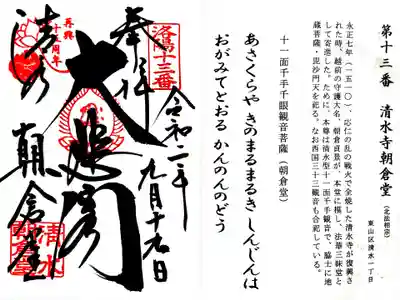 第十三番 清水寺朝倉堂(北法相宗)
東山区清水一丁目
永正七年(一五一〇)、応仁の乱の戦火で全焼した清水寺が復興さ
れた時、越前の守護大名、朝倉貞景が、本堂に模し、法華三昧堂と
して寄進した。ために、本尊は清水型十一面千手観音で、脇士に地
蔵菩薩・毘沙門天を祀る。なお西国三十三観音も合祀している。
十一面千手千眼観音菩薩(朝倉堂)
あさくらや きのまるまるき しんじんは
おがみてとおる かんのんのどう
洛陽十三番
奉拝
令和二年九月十九日
大悲閣
再興十五周年
清水
朝倉堂
清水
朝倉堂